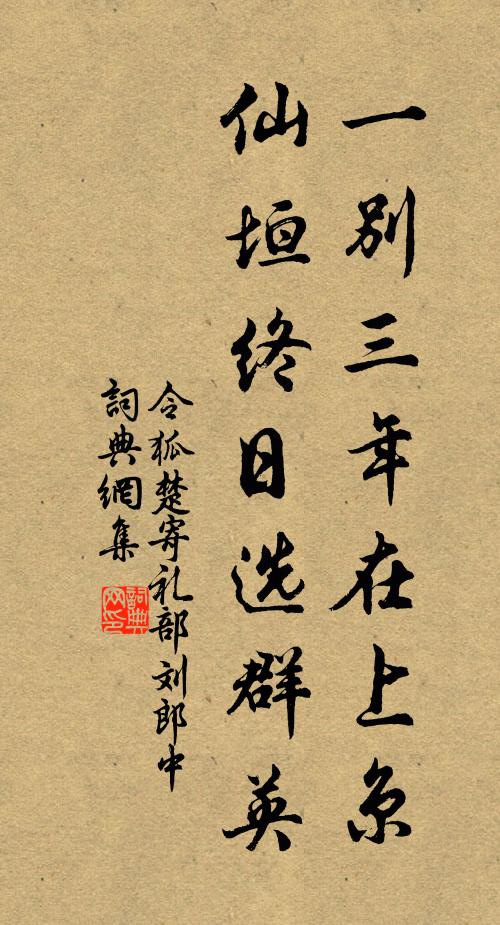 一别三年在上京
仙垣终日选群英
令狐楚寄礼部刘郎中
詞典網集
詞典网印